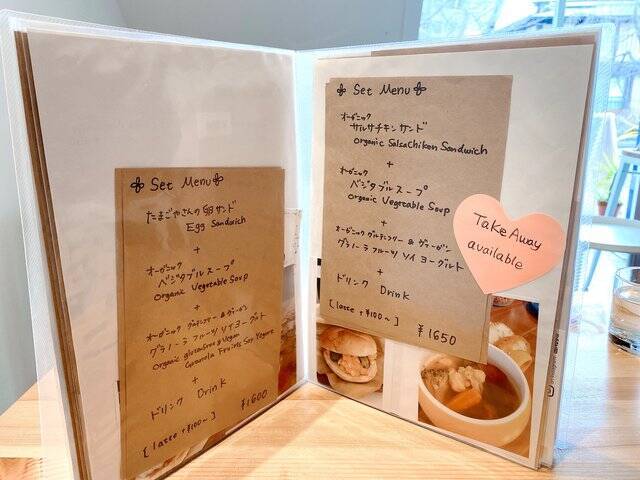 Set Menu
たまごやさんの卵サンド
Egg Sandwich
+
オーガニック
ベジタブルスープ
organic Vegetable Soup
+
オーガニック グルテンフリー & ヴィーガン
グラノーラ フルーツ ソイ ヨーグルト
organic glutenfree & vegan
Granola Fruits Soy Yogurt
+
ドリンク Drink
[latte +¥100~]
¥1600
Set Menu
オーガニック
サルサチキンサンド
organic Salsachiken Sandwich
+
オーガニック
ベジタブルスープ
organic Vegetable Soup
+
オーガニック グルテンフリー & ヴィーガン
グラノーラ フルーツ ソイ ヨーグルト
+
ドリンク Drink
[latte +¥100~]
¥1650
Take Away
available